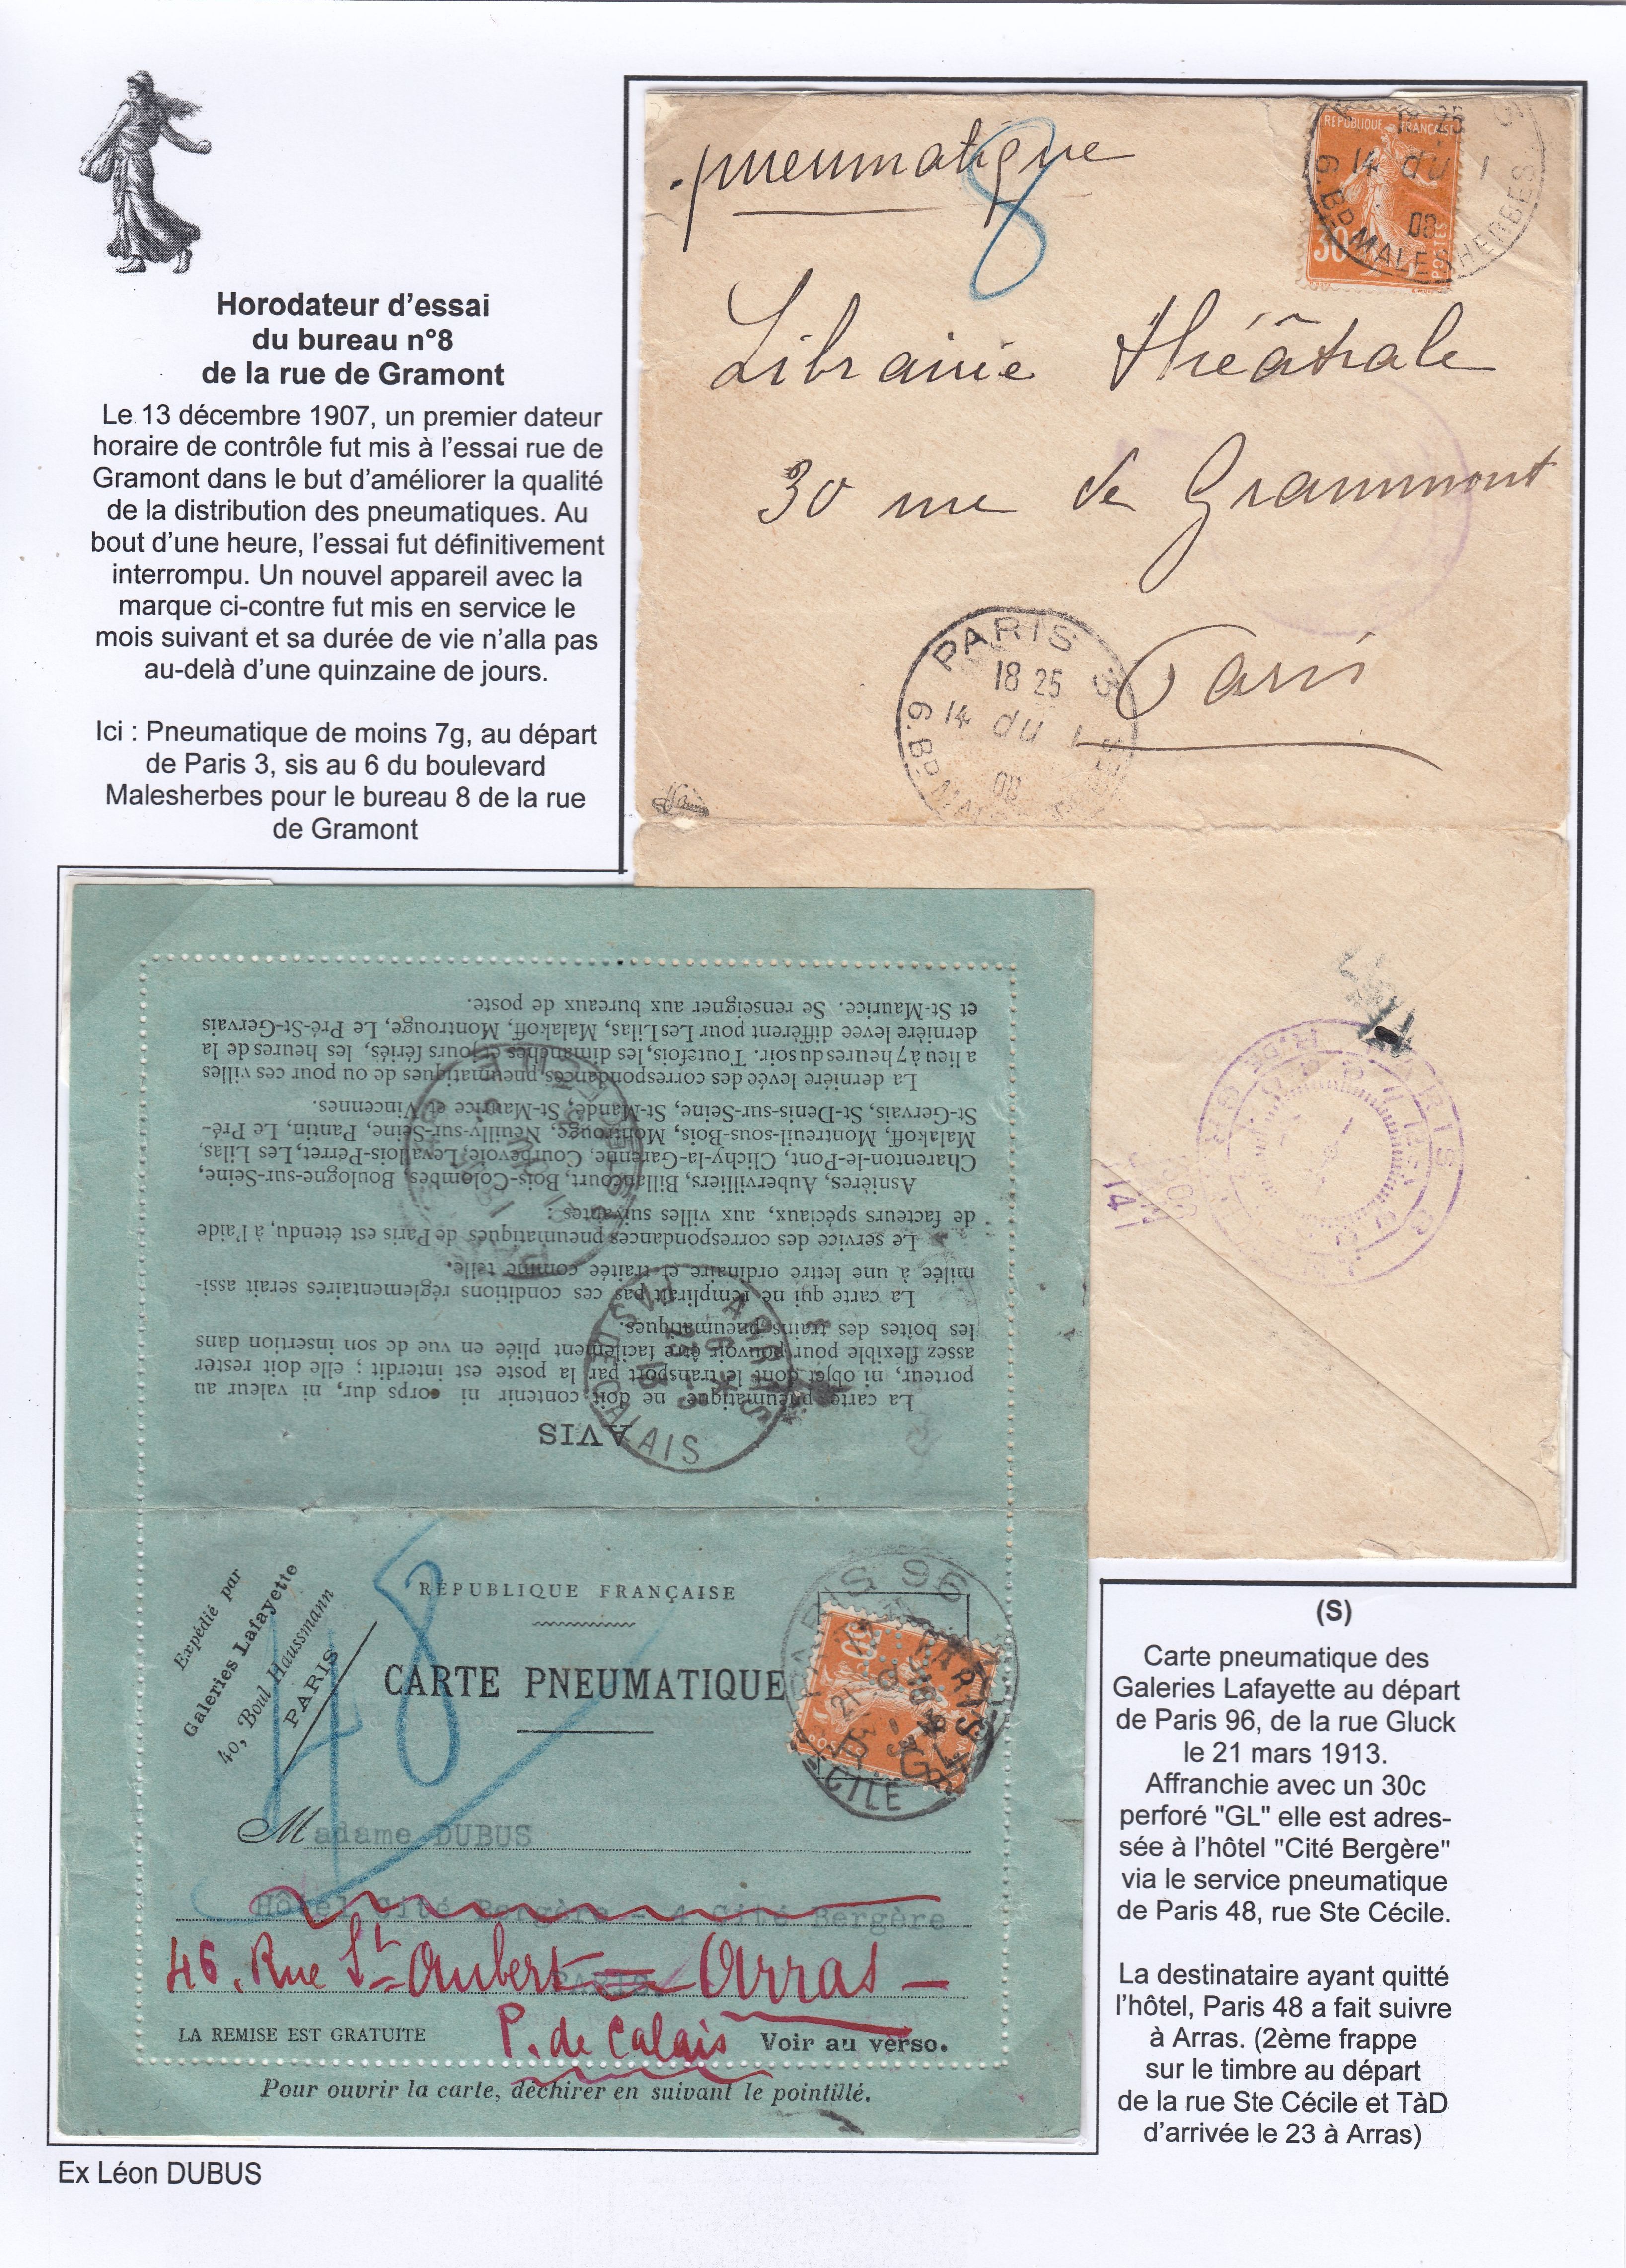 Horodateur d'essai
du bureau n°8
de la rue de Gramont
Le 13 décembre 1907, un premier dateur
horaire de contrôle fut mis à l'essai rue de
Gramont dans le but d'améliorer la qualité
de la distribution des pneumatiques. Au
bout d'une heure, l'essai fut définitivement
interrompu. Un nouvel appareil avec la
marque ci-contre fut mis en service le
mois suivant et sa durée de vie n'alla pas
au-delà d'une quinzaine de jours.
Ici : Pneumatique de moins 7g, au départ
de Paris 3, sis au 6 du boulevard
Malesherbes pour le bureau 8 de la rue
de Gramont
pneumatique
8
RÉPUBLIQUE FRANÇAISE
30
POSTES
18 25
14 du 1
08
6. Bd MALESHERBES
Librairie théâtrale
30 rue de Grammont
Paris
PARIS 3
18 25
14 du 1
08
6. Bd
AVIS
La carte pneumatique ne doit contenir ni corps dur, ni valeur au
porteur, ni objet dont le transport par la poste est interdit ; elle doit rester
assez flexible pour pouvoir être facilement pliée en vue de son insertion dans
les boîtes des trains pneumatiques.
La carte qui ne remplirait pas ces conditions réglementaires serait assi-
milée à une lettre ordinaire et traitée comme telle.
Le service des correspondances pneumatiques de Paris est étendu, à l'aide
de facteurs spéciaux, aux villes suivantes :
Asnières, Aubervilliers, Billancourt, Bois-Colombes, Boulogne-sur-Seine,
Charenton-le-Pont, Clichy-la-Garenne, Courbevoie, Levallois-Perret, Les Lilas,
Malakoff, Montreuil-sous-Bois, Montrouge, Neuilly-sur-Seine, Pantin, Le Pré-
St-Gervais, St-Denis-sur-Seine, St-Mandé, St-Maurice et Vincennes.
La dernière levée des correspondances pneumatiques de ou pour ces villes
a lieu à 7 heures du soir. Toutefois, les dimanches et jours fériés, les heures de la
dernière levée diffèrent pour Les Lilas, Malakoff, Montrouge, Le Pré-St-Gervais
et St-Maurice. Se renseigner aux bureaux de poste.
ARRAS
PAS DE CALAIS
Expédié par
Galeries Lafayette
40, Boul Haussmann
PARIS
48
RÉPUBLIQUE FRANÇAISE
CARTE PNEUMATIQUE
PARIS 96
Madame DUBUS
Hôtel Cité Bergère - 4 Cité Bergère
PARIS
46. Rue St Aubert = Arras -
P. de Calais
LA REMISE EST GRATUITE
Voir au verso.
Pour ouvrir la carte, déchirer en suivant le pointillé.
(S)
Carte pneumatique des
Galeries Lafayette au départ
de Paris 96, de la rue Gluck
le 21 mars 1913.
Affranchie avec un 30c
perforé "GL" elle est adres-
sée à l'hôtel "Cité Bergère"
via le service pneumatique
de Paris 48, rue Ste Cécile.
La destinataire ayant quitté
l'hôtel, Paris 48 a fait suivre
à Arras. (2ème frappe
sur le timbre au départ
de la rue Ste Cécile et TàD
d'arrivée le 23 à Arras)
Ex Léon DUBUS